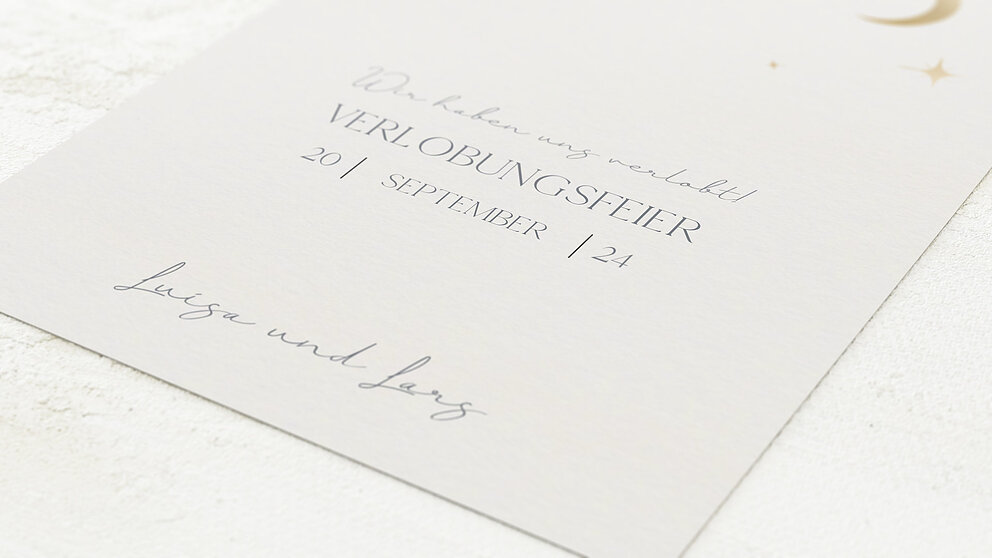 Wir haben uns verlobt!
VERLOBUNGSFEIER
20 | SEPTEMBER | 24
Luisa und Lars